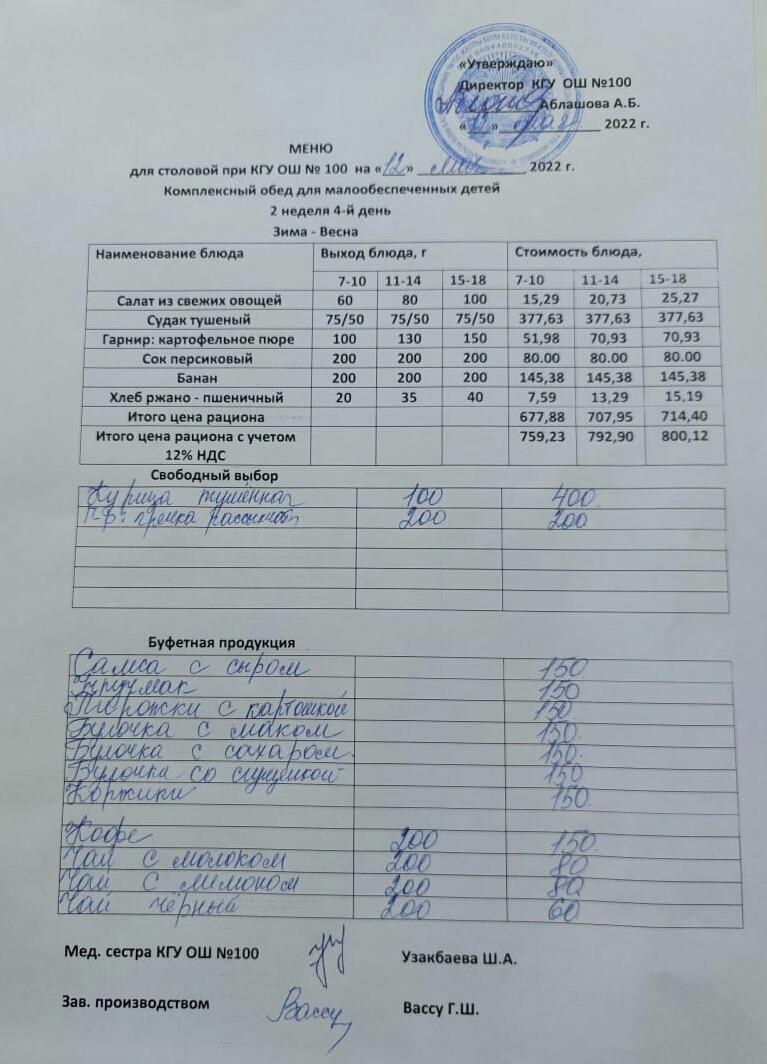 «Утверждаю»
Директор КГУ ОШ №100
Аблашова А.Б.
« » 2022 г.
МЕНЮ
для столовой при КГУ ОШ № 100 на «12» мая 2022 г.
Комплексный обед для малообеспеченных детей
2 неделя 4-й день
Зима - Весна
Наименование блюда Выход блюда, г Стоимость блюда,
7-10 11-14 15-18 7-10 11-14 15-18
Салат из свежих овощей 60 80 100 15,29 20,73 25,27
Судак тушеный 75/50 75/50 75/50 377,63 377,63 377,63
Гарнир: картофельное пюре 100 130 150 51,98 70,93 70,93
Сок персиковый 200 200 200 80.00 80.00 80.00
Банан 200 200 200 145,38 145,38 145,38
Хлеб ржано - пшеничный 20 35 40 7,59 13,29 15,19
Итого цена рациона 677,88 707,95 714,40
Итого цена рациона с учетом 759,23 792,90 800,12
12% НДС
Свободный выбор
Курица тушённая 100 400
гречка 200 200
Буфетная продукция
Самса с сыром 150
150
Пирожки с картошкой 150
Булочка с маком 150
Булочка с сахаром 150
Булочка со сгущенкой 150
Коржики 150
Кофе 200 150
Чай с молоком 200 80
Чай с лимоном 200 80
Чай чёрный 200 60
Мед. сестра КГУ ОШ №100 Узакбаева Ш.А.
Зав. производством Вассу Вассу Г.Ш.